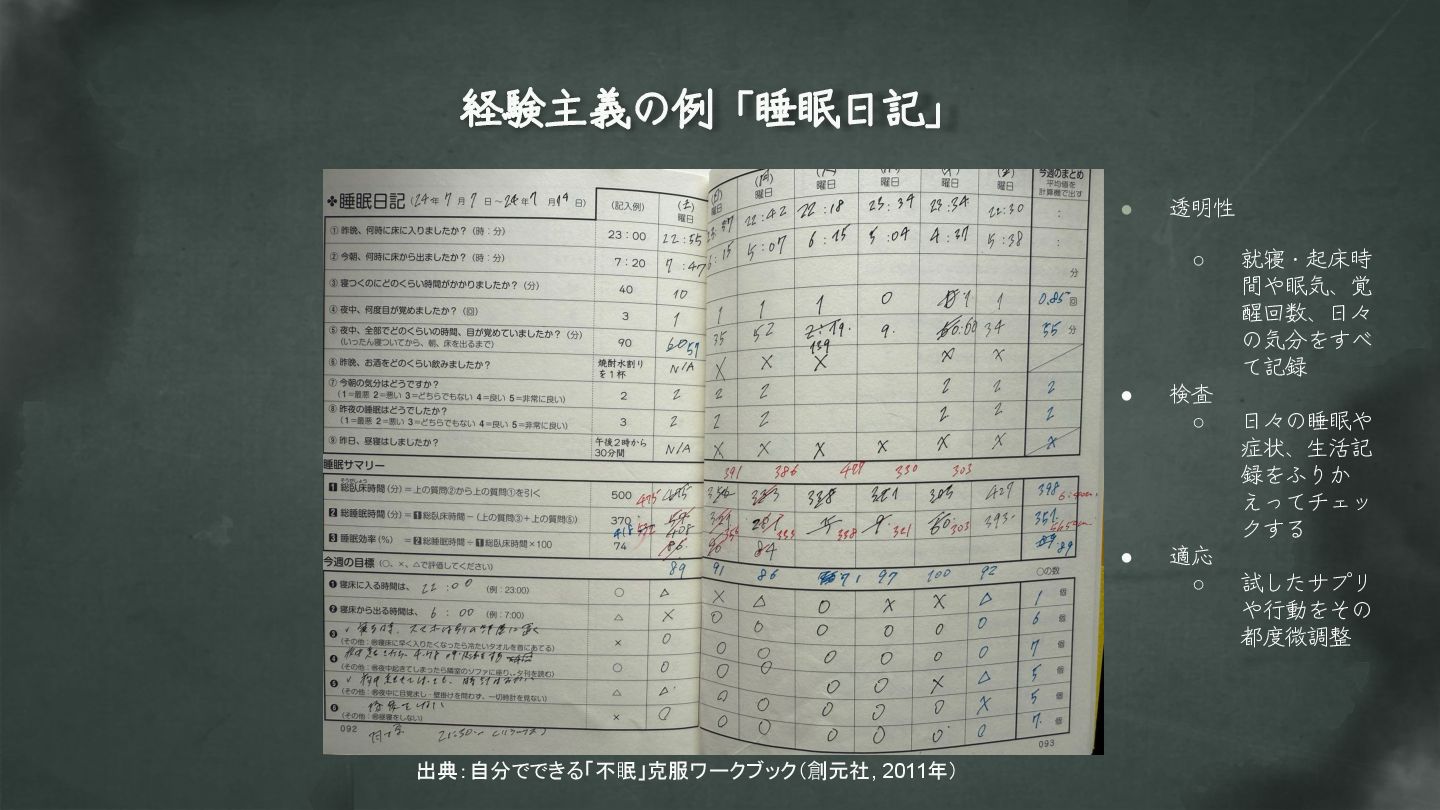 経験主義の例「睡眠日記」
❖睡眠日記(24年7月7日～24年7月14日)
(記入例) (土)曜日 (日)曜日 (月)曜日 曜日 曜日 曜日 (金)曜日 今週のまとめ 平均値を計算機で出す
① 昨晩、何時に床に入りましたか?(時:分) 23:00 22:55 22:42 22:18 23:34 22:30 :
② 今朝、何時に床から出ましたか?(時:分) 7:20 7:47 6:15 5:07 6:15 5:04 4:37 5:38 :
③ 寝つくのにどのくらい時間がかかりましたか?(分) 40 10 分
④ 夜中、何度目が覚めましたか?(回) 3 1 1 1 1 0 1 1 0.85回
⑤ 夜中、全部でどのくらいの時間、目が覚めていましたか?(分) 90 35 52 139 9. 34 55分
(いったん寝ついてから、朝、床を出るまで)
⑥ 昨晩、お酒をどのくらい飲みましたか? 焼酎水割りを1杯 N/A X X X X X
⑦ 今朝の気分はどうですか? 2 2 2 2 2 2 2
(1=最悪 2=悪い 3=どちらでもない 4=良い 5=非常に良い)
⑧ 昨夜の睡眠はどうでしたか? 3 2 2 2 2 2 2
(1=最悪 2=悪い 3=どちらでもない 4=良い 5=非常に良い)
⑨ 昨日、昼寝はしましたか? 午後2時から30分間 N/A X X X X X X X
睡眠サマリー 391 386 330 303
そうがしょう
1 総臥床時間(分)=上の質問②から上の質問①を引く 500 475 429 398
2 総睡眠時間(分)=1総臥床時間−(上の質問③+上の質問⑤) 370 338 321 303 393
3 睡眠効率(%) =2総睡眠時間÷1総臥床時間×100 74 84 89
今週の目標(○、×、△で評価してください) 89 91 86 71 97 100 92 ○の数
❶ 寝床に入る時間は、22:00 (例:23:00) ○ △ X △ O X X △ 1個
❷ 寝床から出る時間は、6:00 (例:7:00) △ X O O O O O O 6個
❸
(その他:㊕寝床に早く入りたくなったら冷たいタオルを首にあてる) × O O O O O O O 7個
❹
(その他:㊕夜中起きてしまったら隣室のソファに座り、夕刊を読む) ○ O O O O O X △ 5個
❺
(その他:㊕夜中に目覚まし・壁掛けを問わず、一切時計を見ない) △ △ O O O O O X 5個
❻ 昼寝をしない
(その他:㊕昼寝をしない) × O O O O O O O 7個
092
093
出典:自分でできる「不眠」克服ワークブック(創元社, 2011年)
● 透明性
○ 就寝・起床時
間や眠気、覚
醒回数、日々
の気分をすべ
て記録
● 検査
○ 日々の睡眠や
症状、生活記
録をふりか
えってチェッ
クする
● 適応
○ 試したサプリ
や行動をその
都度微調整